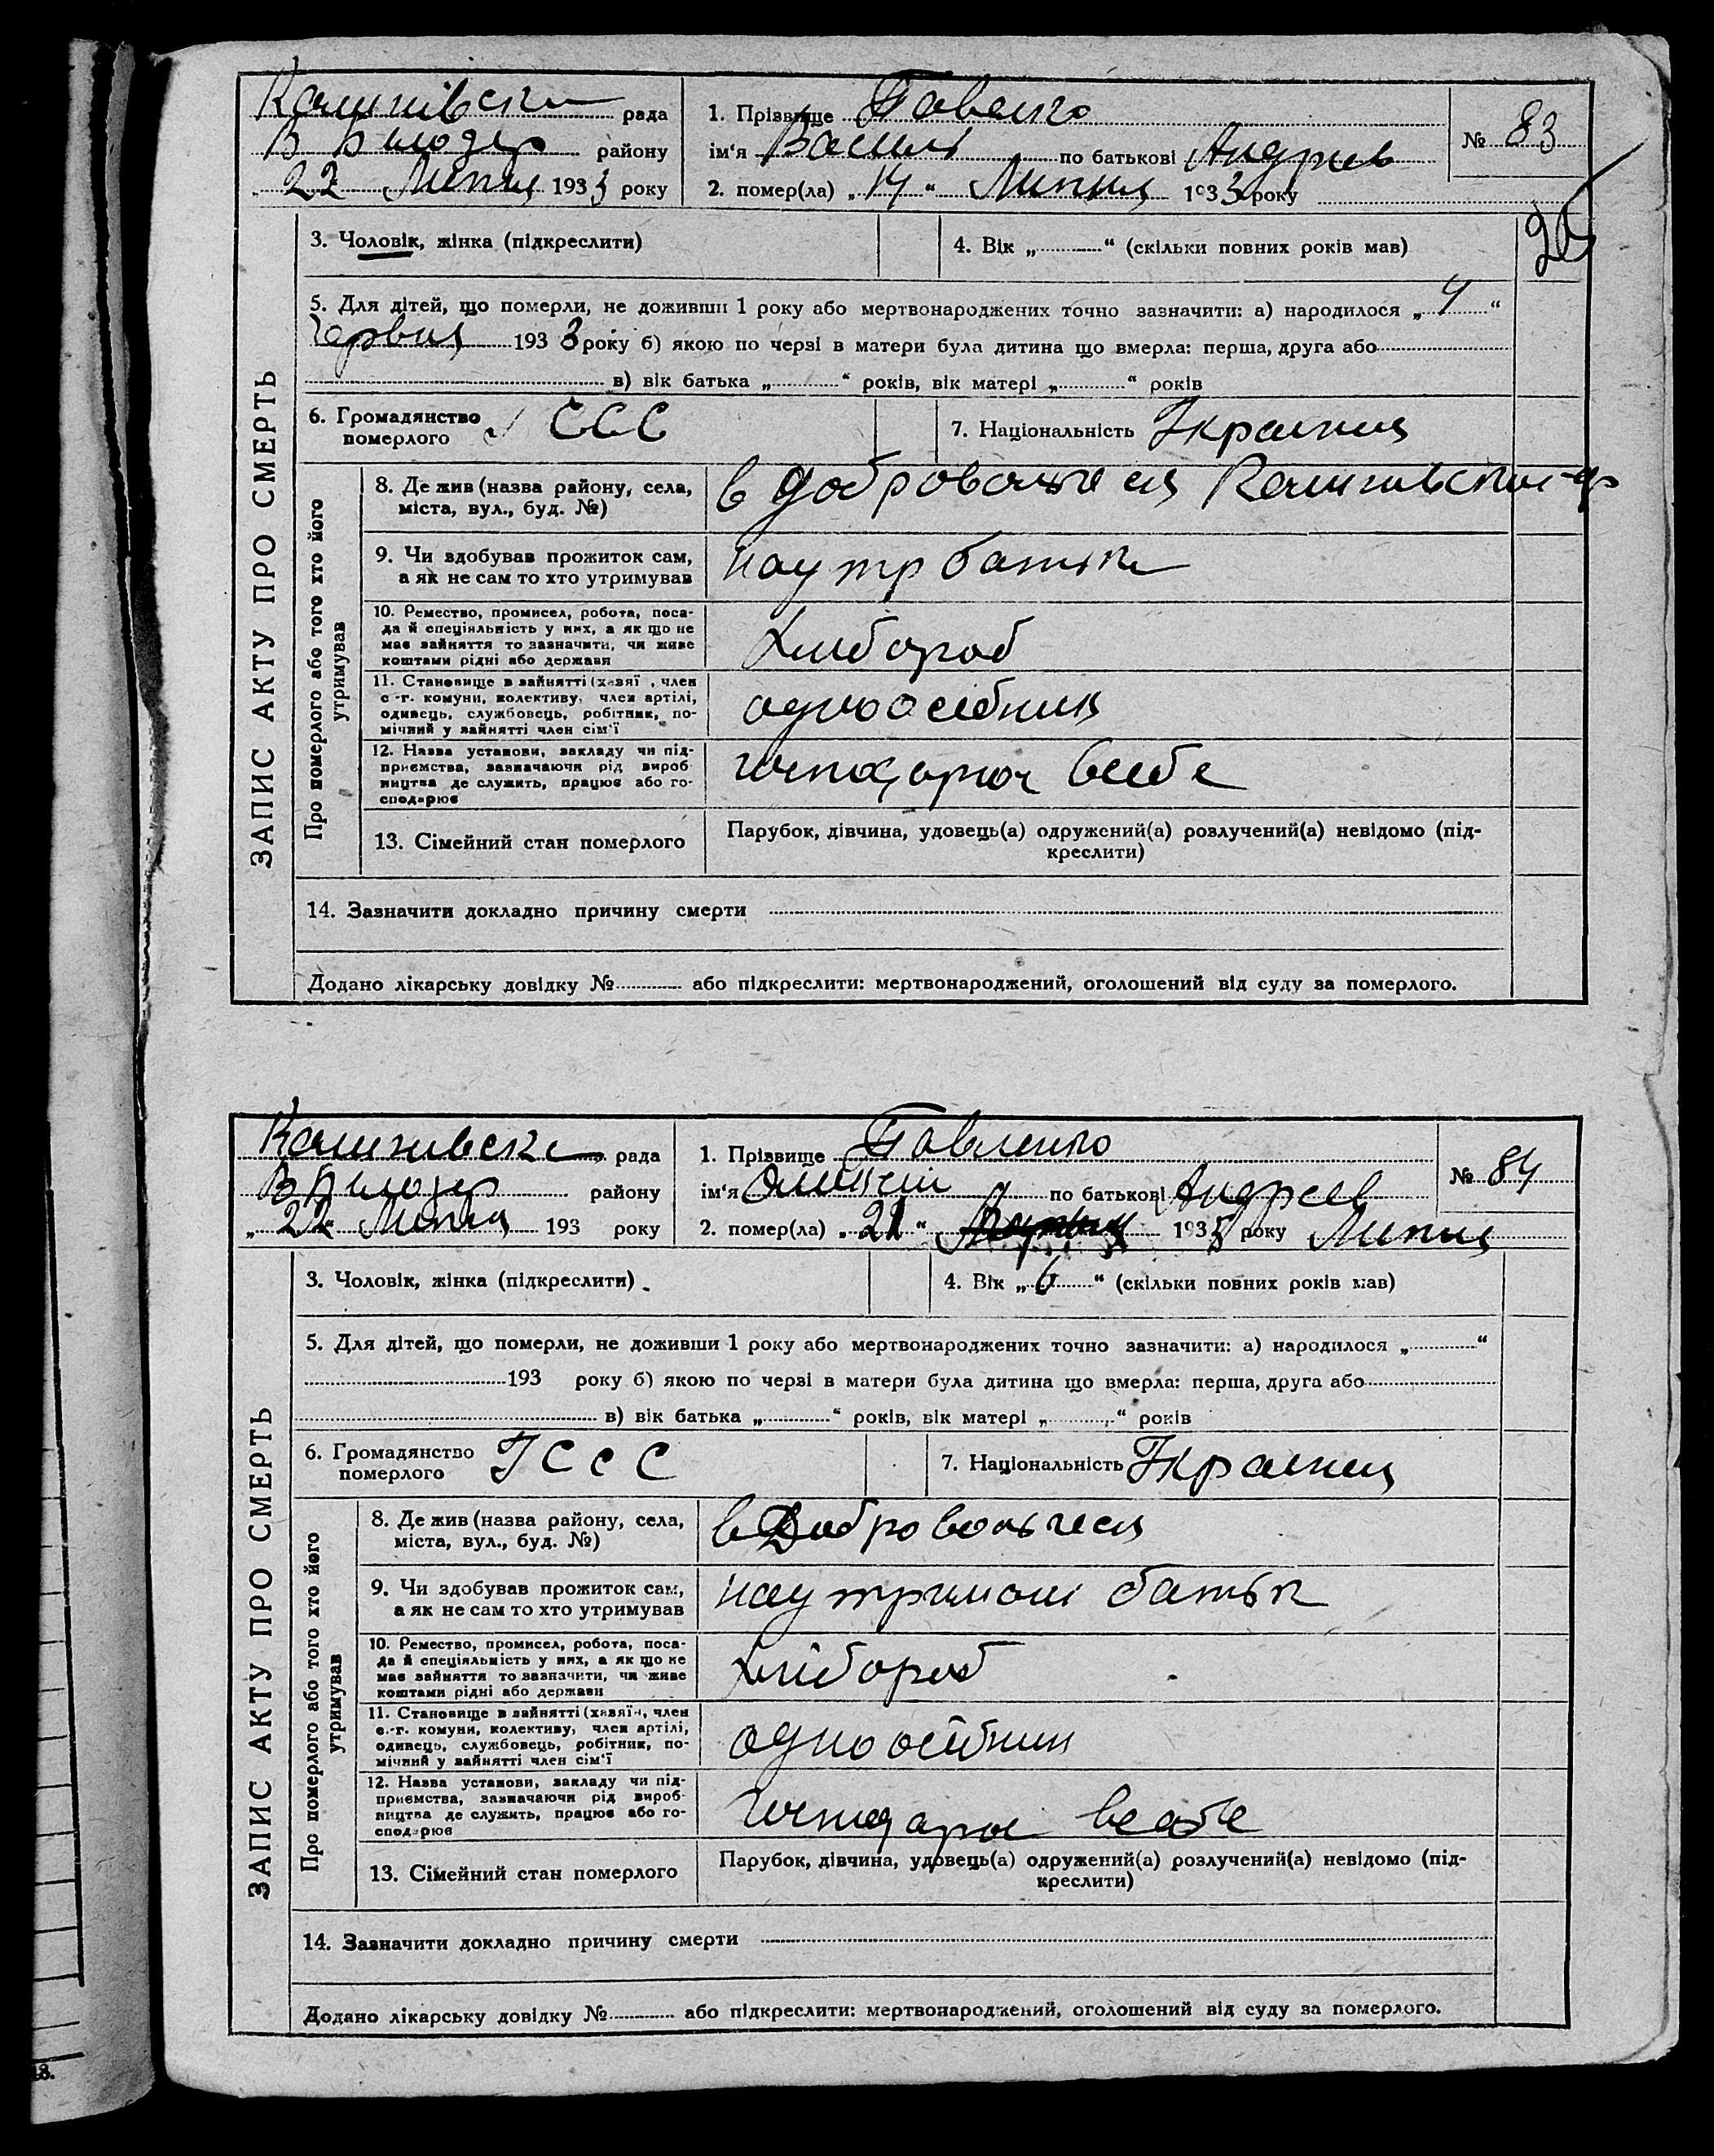 ЗАПИС АКТУ ПРО СМЕРТЬ
рада
В Білозер району
„ 22 Липня 1933 року
1. Прізвище Павленко
ім‘я Василь по батькові Андріев
2. помер(ла) „ 14 “ Липня 1933 року
№ 83
3. Чоловік, жінка (підкреслити)
4. Вік „ “ (скільки повних років мав)
5. Для дітей, що померли, не доживши 1 року або мертвонароджених точно зазначити: а) народилося „ 4 “
Червня 1933 року б) якою по черзі в матери була дитина що вмерла: перша, друга або
в) вік батька „ “ років, вік матері „ “ років
6. Громадянство
померлого У ССС
7. Національність Українец
Про померлого або того хто його
утримував
8. Де жив (назва району, села,
міста, вул., буд. №)
в
9. Чи здобував прожиток сам,
а як не сам то хто утримував
на утр батька
10. Ремество, промисел, робота, поса-
да й спеціяльність у них, а як що не
має зайняття то зазначити, чи живе
коштами рідні або держави
Хлібороб
11. Становище в зайнятті (хазяї , член
с.-г. комуни, колективу, член артілі,
одинець, службовець, робітник, по-
мічний у зайнятті член сім‘ї
одноосібник
12. Назва установи, закладу чи під-
приємства, зазначаючи рід вироб-
ництва де служить, працює або го-
сподарює
в себе
13. Сімейний стан померлого
Парубок, дівчина, удовець(а) одружений(а) розлучений(а) невідомо (під-
креслити)
14. Зазначити докладно причину смерти
Додано лікарську довідку № або підкреслити: мертвонароджений, оголошений від суду за померлого.
ЗАПИС АКТУ ПРО СМЕРТЬ
рада
В Білозер району
„ 22 Липня 193 року
1. Прізвище Павленко
ім‘я Олексій по батькові Андреев
2. помер(ла) „ 21 “ 1933 року Липня
№ 84
3. Чоловік, жінка (підкреслити)
4. Вік „ 6 “ (скільки повних років мав)
5. Для дітей, що померли, не доживши 1 року або мертвонароджених точно зазначити: а) народилося „ “
193 року б) якою по черзі в матери була дитина що вмерла: перша, друга або
в) вік батька „ “ років, вік матері „ “ років
6. Громадянство
померлого УССС
7. Національність Українец
Про померлого або того хто його
утримував
8. Де жив (назва району, села,
міста, вул., буд. №)
в
9. Чи здобував прожиток сам,
а як не сам то хто утримував
на утримані батьк
10. Ремество, промисел, робота, поса-
да й спеціяльність у них, а як що не
має зайняття то зазначити, чи живе
коштами рідні або держави
Хлібороб
11. Становище в зайнятті (хазяїн, член
с.-г. комуни, колективу, член артілі,
одинець, службовець, робітник, по-
мічний у зайнятті член сім‘ї
одноосібник
12. Назва установи, закладу чи під-
приємства, зазначаючи рід вироб-
ництва де служить, працює або го-
сподарює
в себе
13. Сімейний стан померлого
Парубок, дівчина, удовець(а) одружений(а) розлучений(а) невідомо (під-
креслити)
14. Зазначити докладно причину смерти
Додано лікарську довідку № або підкреслити: мертвонароджений, оголошений від суду за померлого.